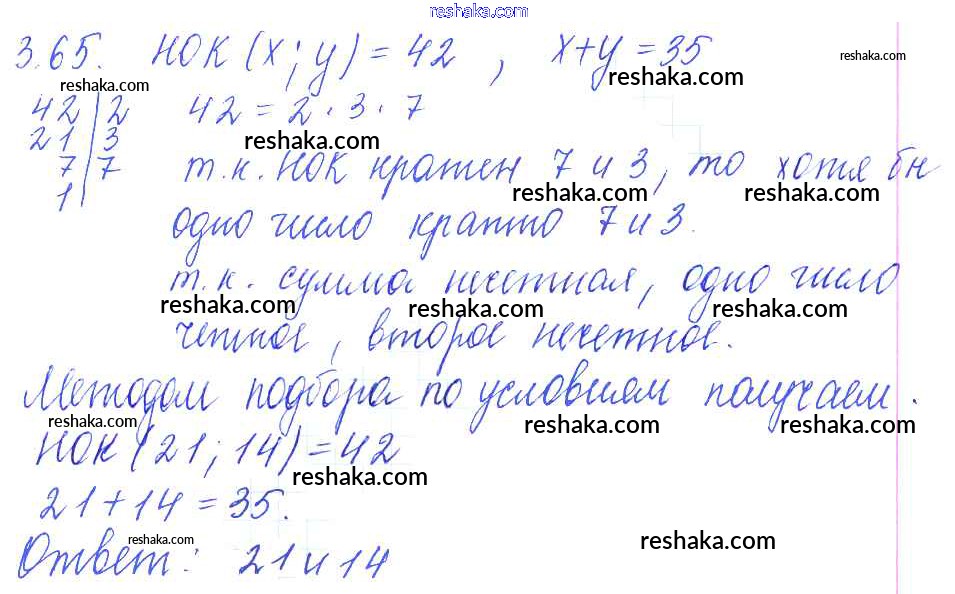 reshaka.com
3.65. НОК (x; y) = 42, x+y = 35
reshaka.com reshaka.com reshaka.com
42 | 2 42 = 2 · 3 · 7
21 | 3 reshaka.com
7 | 7 т.к. НОК кратен 7 и 3, то хотя бы
reshaka.com reshaka.com
1
одно число кратно 7 и 3.
т.к. сумма нечетная, одно число
reshaka.com reshaka.com reshaka.com
четное, второе нечетное.
Методом подбора по условиям получаем.
reshaka.com reshaka.com reshaka.com
НОК (21; 14) = 42
reshaka.com
21 + 14 = 35.
reshaka.com reshaka.com
Ответ: 21 и 14